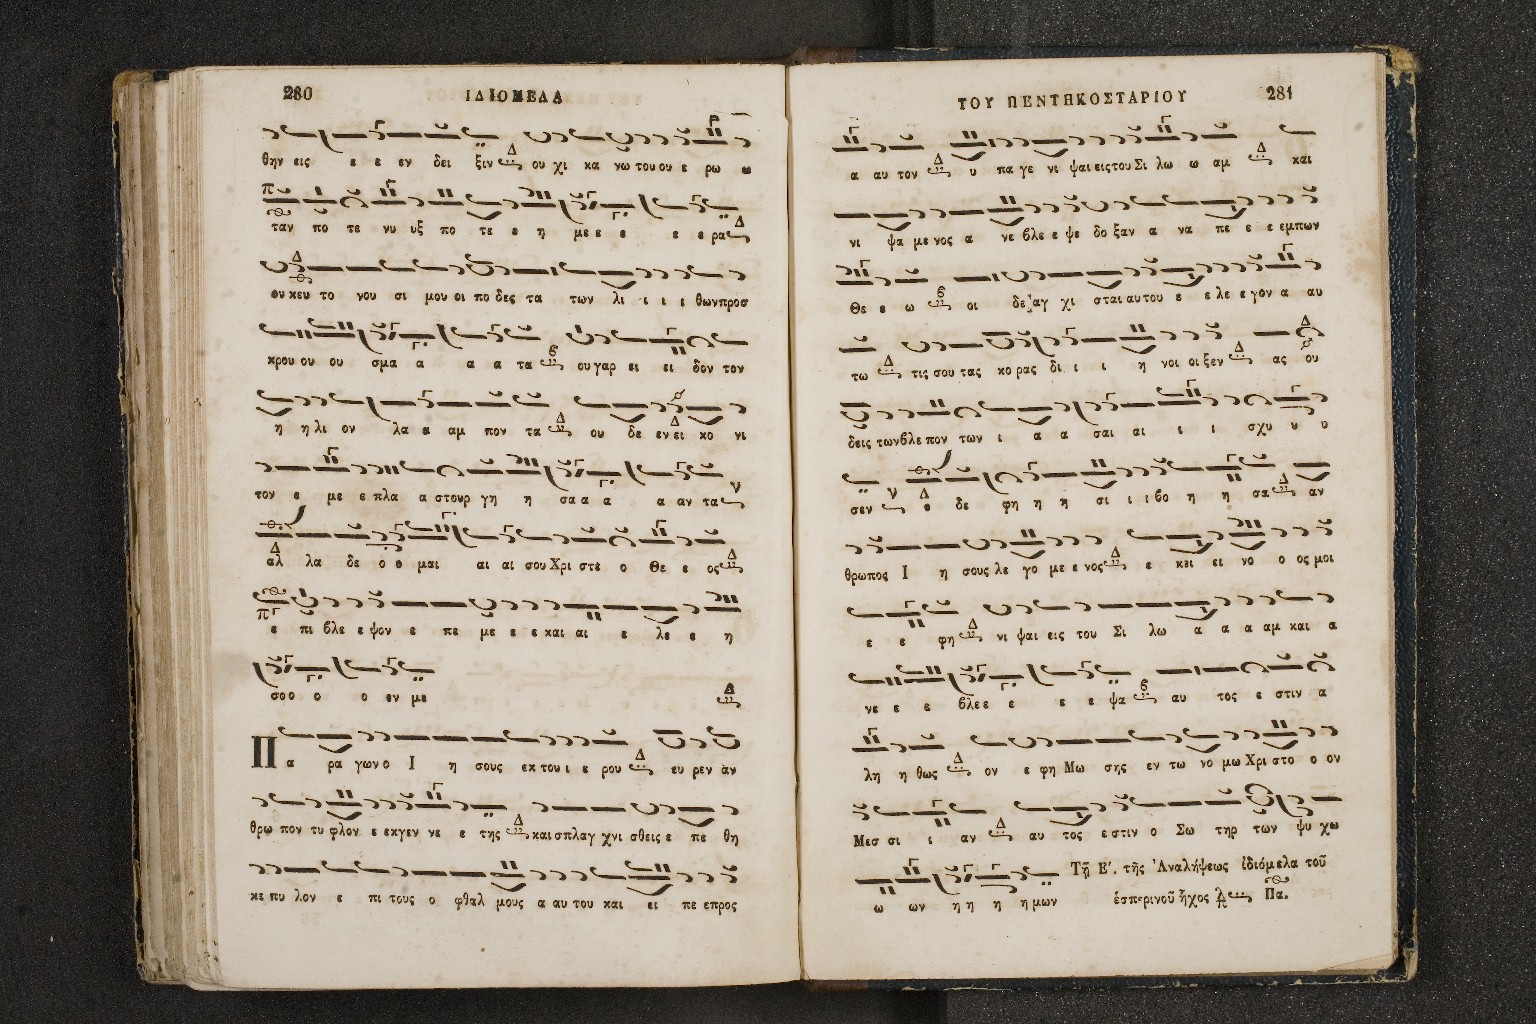 280 ΙΔΙΟΜΕΛΑ
θην εις ε ε εν δει ξιν ου χι κα νω του ου ε ρω ω
ταν πο τε νυ υξ πο τε ε η με ε ε ε ε ρα
ου κευ το νου σι μου οι πο δες τα των λι ι ι ι θωνπροσ
κρου ου ου σμα α α α τα ου γαρ ει ει δον τον
η η λι ον λα α αμ πον τα ου δε εν ει κο νι
τον ε με ε πλα α στουρ γη η σα α α α αν τα
αλ λα δε ο ο μαι αι αι σου Χρι στε ο Θε ε ος
ε πι βλε ε ψον ε πε με ε ε και αι ε λε ε η
σο ο ο ο εν με
Πα ρα γων ο Ι η σους εκ του ι ε ρου ευ ρεν αν
θρω πον τυ φλον ε εκγεν νε ε της και σπλαγ χνι σθεις ε πε θη
κε πυ λον ε πι τους ο φθαλ μους α αυ του και ει πε επρος
ΤΟΥ ΠΕΝΤΗΚΟΣΤΑΡΙΟΥ 281
α αυ τον υ πα γε νι ψαι εις του Σι λω ω αμ και
νι ψα με νος α νε βλε ε ψε δο ξαν α να πε ε ε εμπων
Θε ε ω οι δε αγ χι σται αυ του ε ε λε ε γον α αυ
τω τις σου τας κο ρας δι ι ι η νοι οι ξεν ας ου
δεις τωνβλε πον των ι α α σαι αι ι ι σχυ υ υ
σεν ο δε φη η η σι ι ι βο η η σα αν
θρωπος Ι η σους λε γο με ε νος ε κει ει νο ο ος μοι
ε ε φη νι ψαι εις του Σι λω α α α αμ και α
νε ε ε βλε ε ε ε ε ψα αυ τος ε στιν α
λη η θως ον ε φη Μω σης εν τω νο μω Χρι στο ο ον
Μεσ σι ι αν αυ τος ε στιν ο Σω τηρ των ψυ χω
ω ων η η η η μων Τῇ Ε΄. τῆς Ἀναλήψεως ἰδιόμελα τοῦ
ἑσπερινοῦ ἦχος Πα.